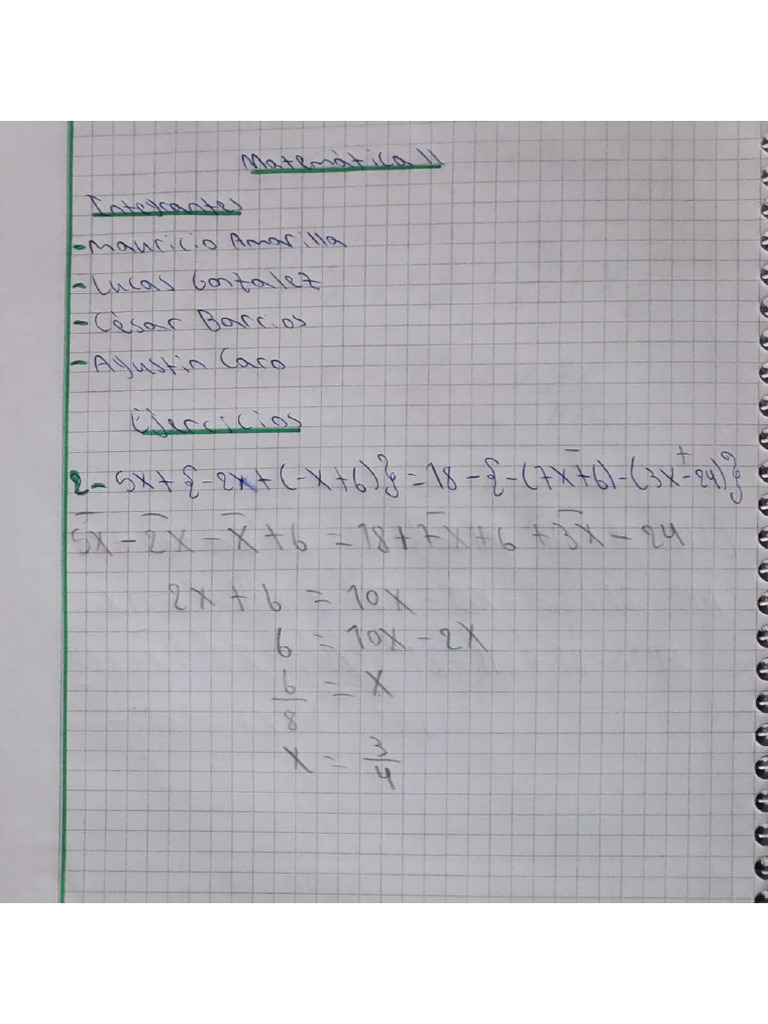 Matemàtica II
Integrantes
-Mauricio Amarilla
-Lucas Gonzalez
-Cèsar Barrios
-Agustin Caro
Ejercicios
2- 5x+{-2x+(-x+6)}=18-{-(7x+6)-(3x-24)}
5x-2x-x+6=18+7x+6+3x-24
2x+6=10x
6=10x-2x
6/8=x
x=3/4